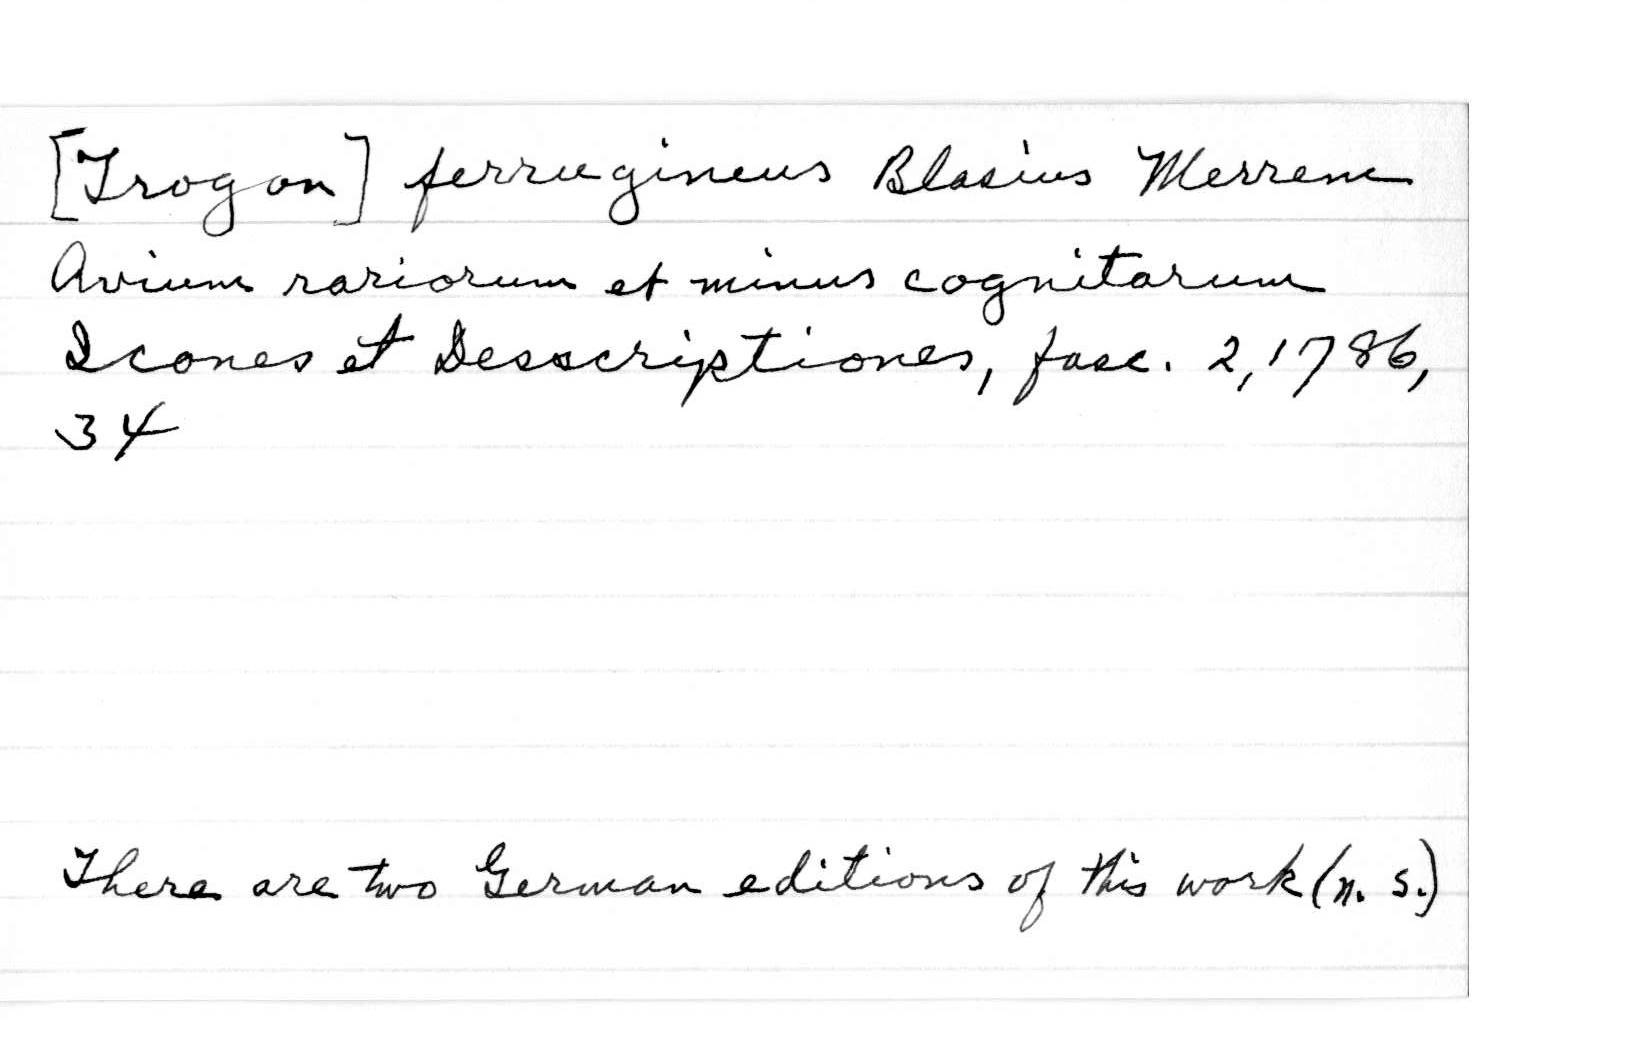 [Trogon] ferrugineus Blasius Merrem
Avium rariorum et minus cognitarum
Icones et Desscriptiones, fasc. 2, 1786,
34
There are two German editions of this work (n. s.)